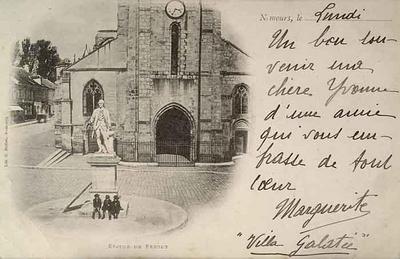 Nemours, le Lundi
Un bon sou-
venir ma
chère Yvonne
d'une amie
qui vous em-
brasse de tout
cœur
Marguerite
"Villa Galatée"
Statue de Bezout